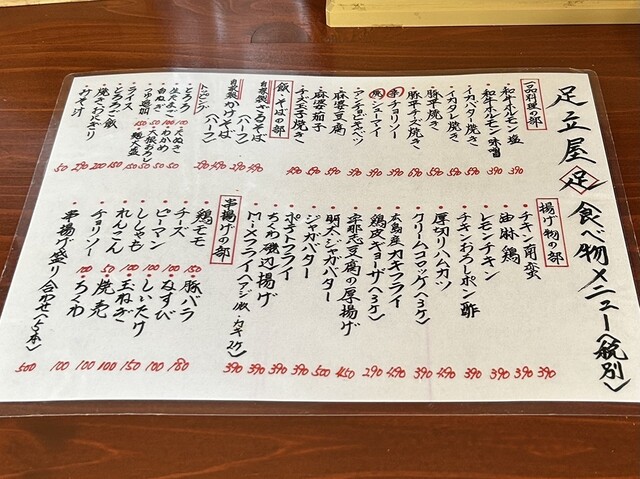 足立屋 足 食べ物メニュー〈税別〉
一品料理の部
・和牛ホルモン塩 390
・和牛ホルモン味噌 390
・イカバター焼き
・イカタレ焼き
・豚平焼き
・豚平チーズ焼き
・チョリソー
・シューマイ
・アンチョビキャベツ
・麻婆豆腐
・麻婆茄子
・チーズ玉子焼き
飯・そばの部
自家製 ざるそば 490
〈ハーフ〉 290
自家製 かけそば 490
〈ハーフ〉 290
トッピング
・とろろ 100
・生たまご 50
・白ねぎ 50
・つゆ追加
・天ぬき
・わかめ
・大根おろし
・麺大盛
・ライス 150
・とろろご飯
・焼きおにぎり
・みそ汁 50
揚げ物の部
・チキン南蛮 390
・油淋鶏 390
・レモンチキン 390
・チキンおろしポン酢
・厚切りハムカツ
・クリームコロッケ〈3ヶ〉
・広島産カキフライ
・鶏皮ギョーザ〈3ヶ〉 290
・宇那志豆腐の厚揚げ 450
・明太ジャガバター 500
・ジャガバター 390
・ポテトフライ 390
・ちくわ磯辺揚げ 390
・MIXフライ 390
串揚げの部
・鶏モモ 150
・チーズ 100
・ピーマン 100
・ししゃも 100
・れんこん 100
・チョリソー 100
・豚バラ 180
・なすび 100
・しいたけ 100
・玉ねぎ 100
・焼売
・ちくわ 100
・串揚げ盛り合わせ〈5本〉 500